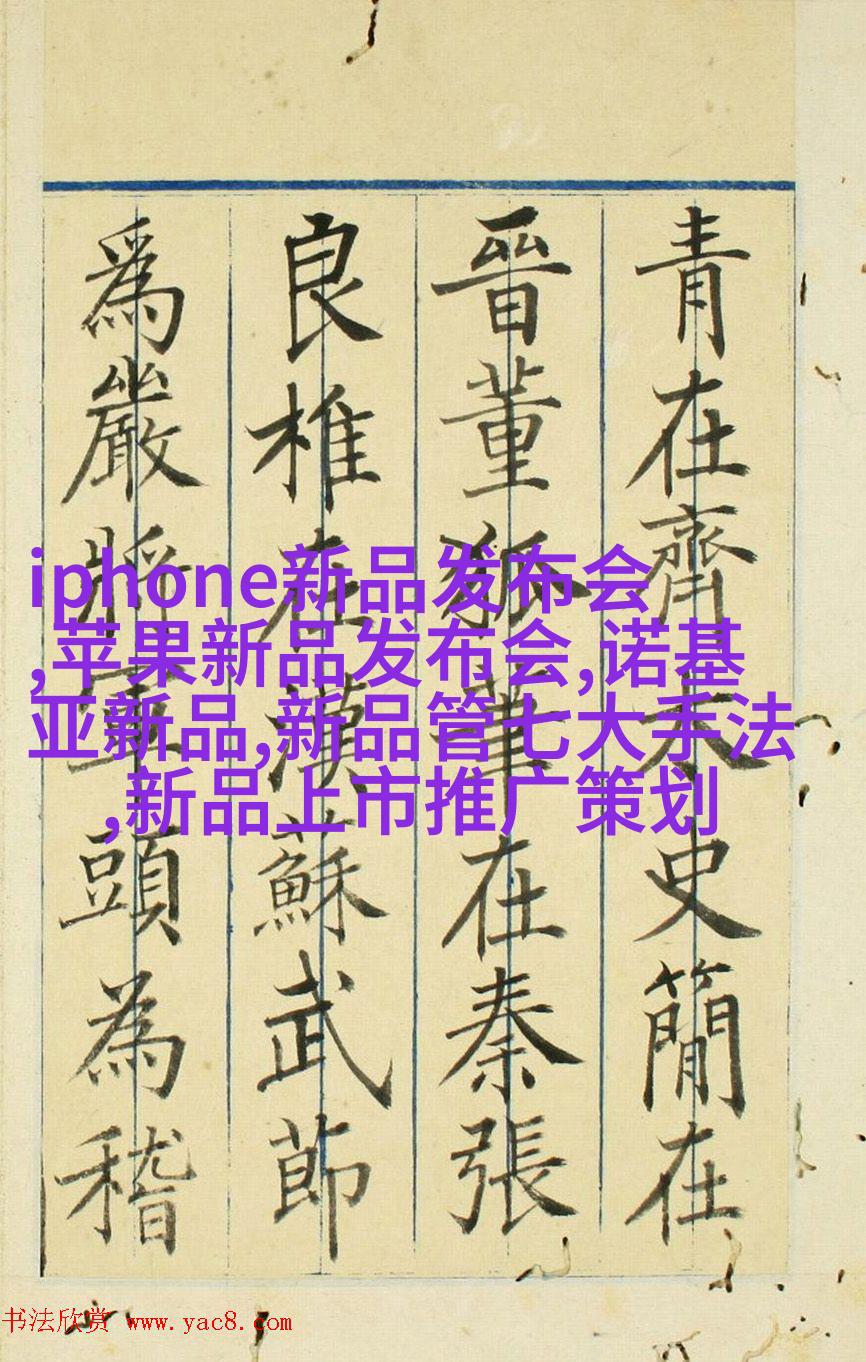 青在齊太史簡在
晉董狐筆在秦張
良椎在漢蘇武節
爲嚴將軍頭為稽
iphone新品发布会
,苹果新品发布会,诺基
亚新品,新品管七大手法
,新品上市推广策划
书法欣赏 www.yac8.com